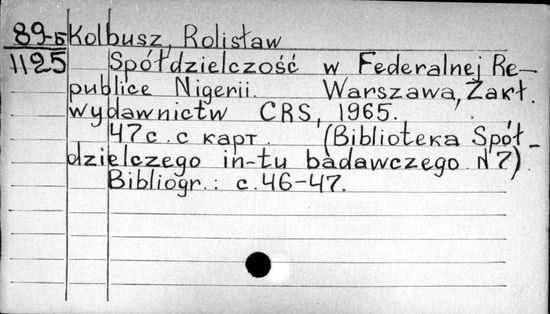 89-Б Kolbusz, Rolisław
1125 Spółdzielczość w Federalnej Re-
publice Nigerii. Warszawa, Zakł.
wydawnictw CRS, 1965.
47с. с карт. (Biblioteka Spół-
dzielczego in-tu badawczego. N 7)
Bibliogr.: c. 46-47.